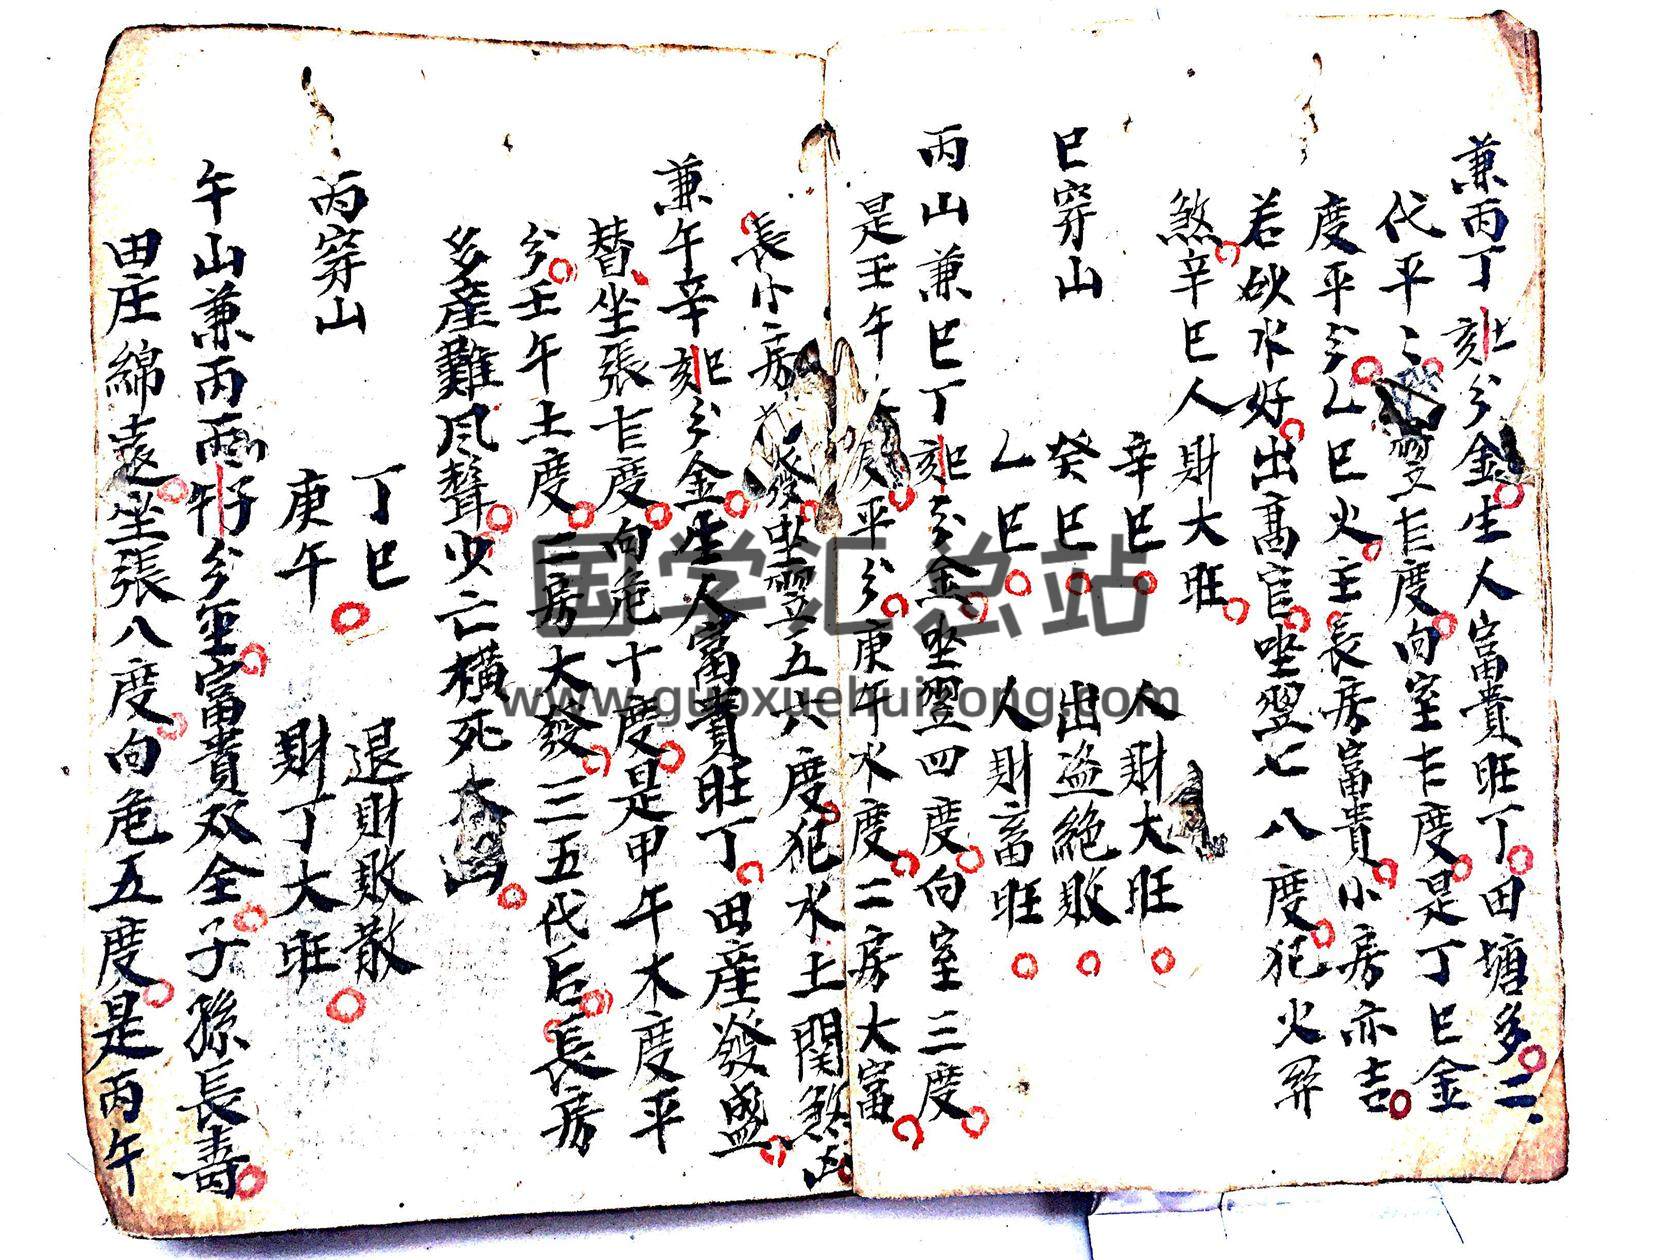 兼丙丁刻巳分金生人富貴旺丁田塘多二
代平翌七度向室七度是丁巳金
度平分乙巳火主長房富貴小房亦吉
若砂水好出髙官坐翌七八度犯火羿
煞辛巳人財大旺
巳穿山
辛巳 人財大旺
癸巳 出盗絶敗
乙巳 人財畜旺
丙山兼巳丁刻巳分金坐翌四度向室三度
是壬午度平分庚午水度二房大富
長小二房發坐翌五六度犯水土関煞凶
兼午辛刻巳分金生人富貴旺丁田産發盛
替坐張七度向危十度是甲午木度平
分壬午土度二房大發三五代后長房
多産難風聲少亡横死凶
丙穿山
丁巳 退財敗散
庚午 財丁大旺
午山兼丙丙午子分金富貴双全子孫長壽
田庄綿遠坐張八度向危五度是丙午
国学汇总站
www.guoxuehuizong.com